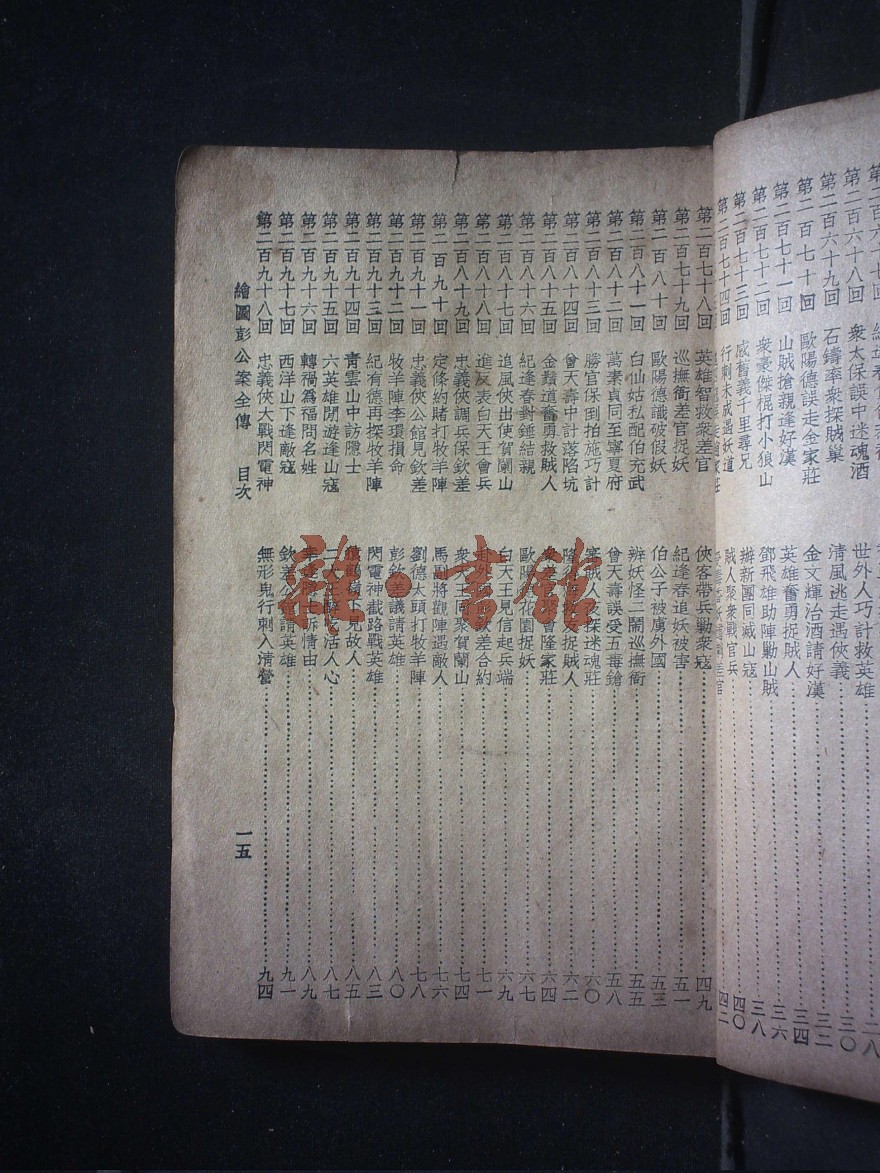 第二百六十八回 衆太保誤中迷魂酒 世外人巧計救英雄 三〇
第二百六十九回 石鑄率衆探賊巢 清風逃走遇俠義 三二
第二百七十回 歐陽德誤走金家莊 金文輝治酒請好漢 三四
第二百七十一回 山賊搶親逢好漢 英雄奮勇捉賊人 三六
第二百七十二回 衆豪傑棍打小狼山 鄧飛雄助陣勦山賊 三八
第二百七十三回 感舊義千里尋兄 辦新團同滅山寇 四〇
第二百七十四回 行刺未成遇妖道 賊人聚衆戰官兵 四二
第二百七十八回 英雄智救衆差官 俠客帶兵勦衆寇 四九
第二百七十九回 巡撫衙差官捉妖 紀逢春追妖被害 五一
第二百八十回 歐陽德識破假妖 伯公子被虜外國 五三
第二百八十一回 白仙姑私配伯充武 辨妖怪二鬧巡撫衙 五五
第二百八十二回 萬素貞同至寧夏府 曾天壽誤受五毒鎗 五八
第二百八十三回 勝官保倒拍施巧計 賊人探迷魂莊 六〇
第二百八十四回 曾天壽中計落陷坑 捉賊人 六二
第二百八十五回 金鷬道奮勇救賊人 會隆家莊 六四
第二百八十六回 紀逢春對錘結親 歐陽 花園捉妖 六七
第二百八十七回 追風俠出使賀蘭山 白天王見信起兵端 六九
第二百八十八回 進反表白天王會兵 赴外 欽差合約 七一
第二百八十九回 忠義俠調兵保欽差 衆天王同聚賀蘭山 七四
第二百九十回 定條約賭打牧羊陣 馬副將觀陣遇敵人 七六
第二百九十一回 忠義俠公館見欽差 劉德太頭打牧羊陣 七八
第二百九十二回 牧羊陣李環損命 彭欽差議請英雄 八〇
第二百九十三回 紀有德再探牧羊陣 閃電神截路戰英雄 八三
第二百九十四回 青雲山中訪隱士 下見故人 八五
第二百九十五回 六英雄閒遊逢山寇 二大王 活人心 八七
第二百九十六回 轉禍爲福問名姓 訴情由 八九
第二百九十七回 西洋山下逢敵寇 欽差公館請英雄 九一
第二百九十八回 忠義俠大戰閃電神 無形鬼行刺入清營 九四
繪圖彭公案全傳 目次 一五
雜·書館